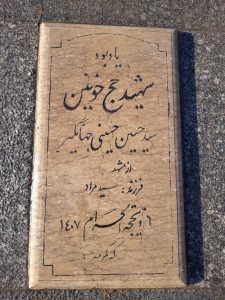 یادبود
شهید حج خونین
سید حسین حسینی جهانگیر
از مشهد
فرزند: سید مراد
۶ ذیحجه الحرام ۱۴۰۷